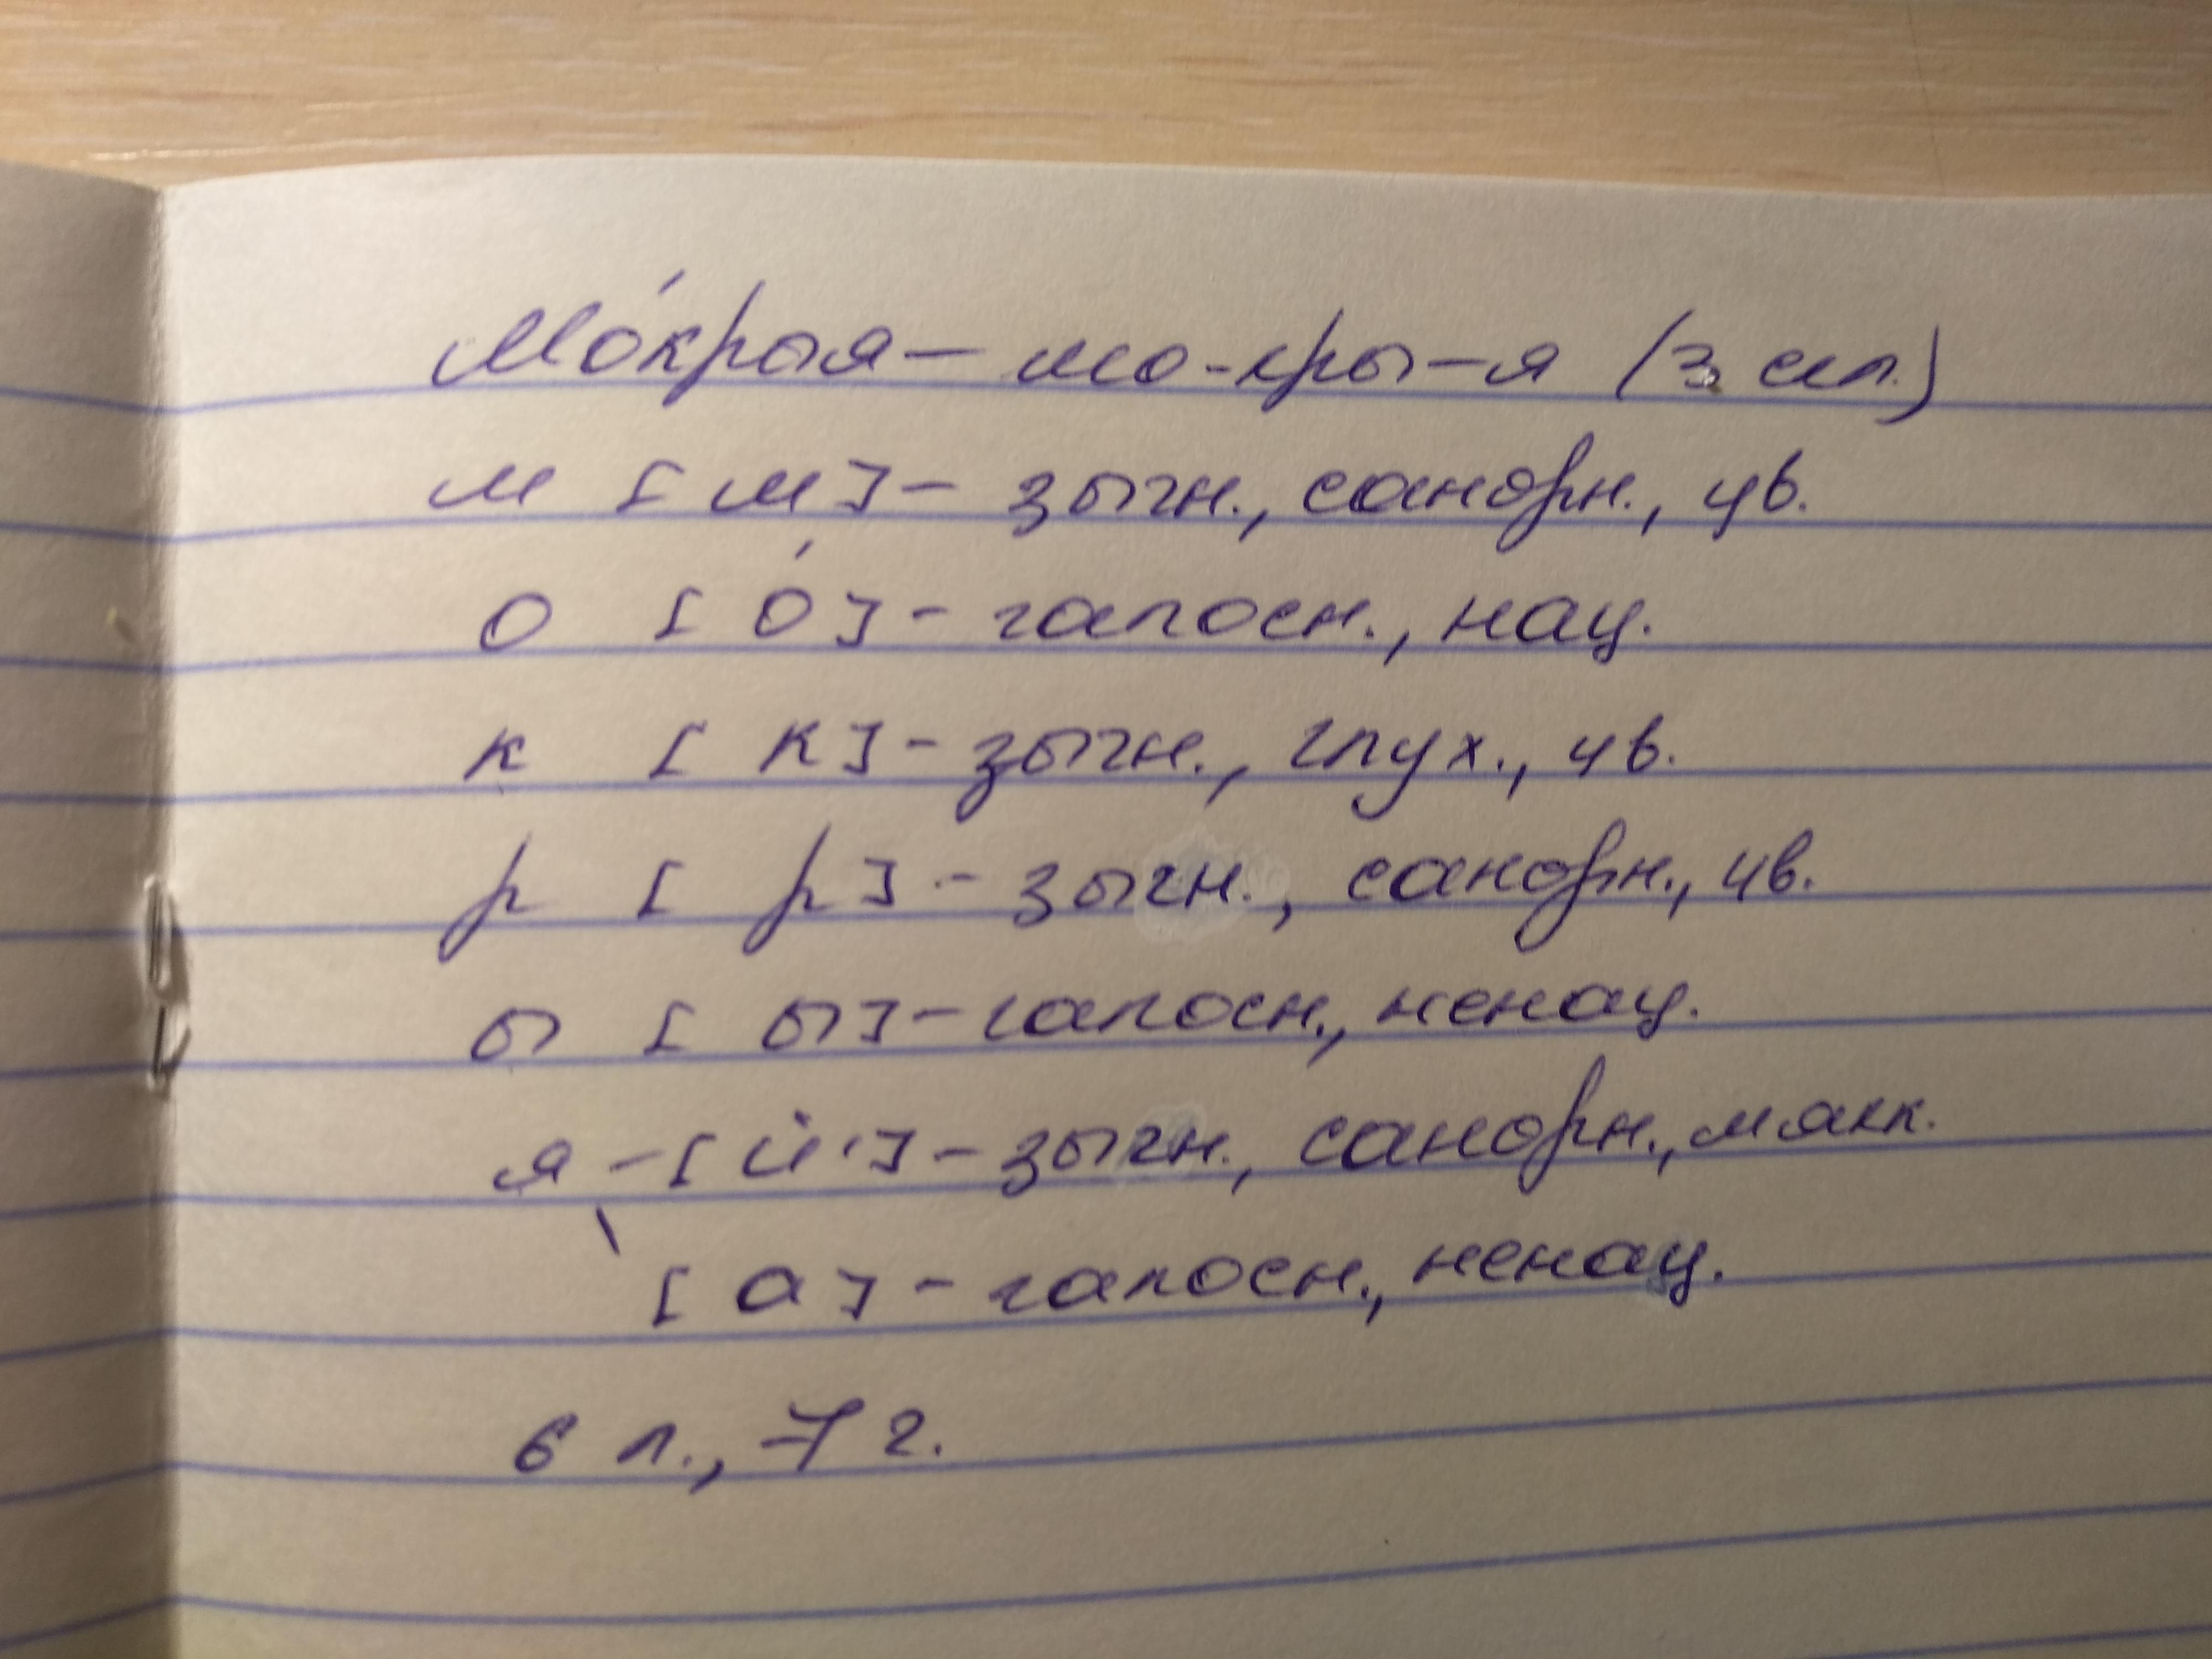 Мо́края – мо-кры-я (3 сл.)
м [м] – зычн., санорн., цв.
о [о́] – галосн., нац.
к [к] – зычн., глух., цв.
р [р] – зычн., санорн., цв.
ы [ы] – галосн., ненац.
я – [й'] – зычн., санорн., мякк.
\ [а] – галосн., ненац.
6 л., 7 г.